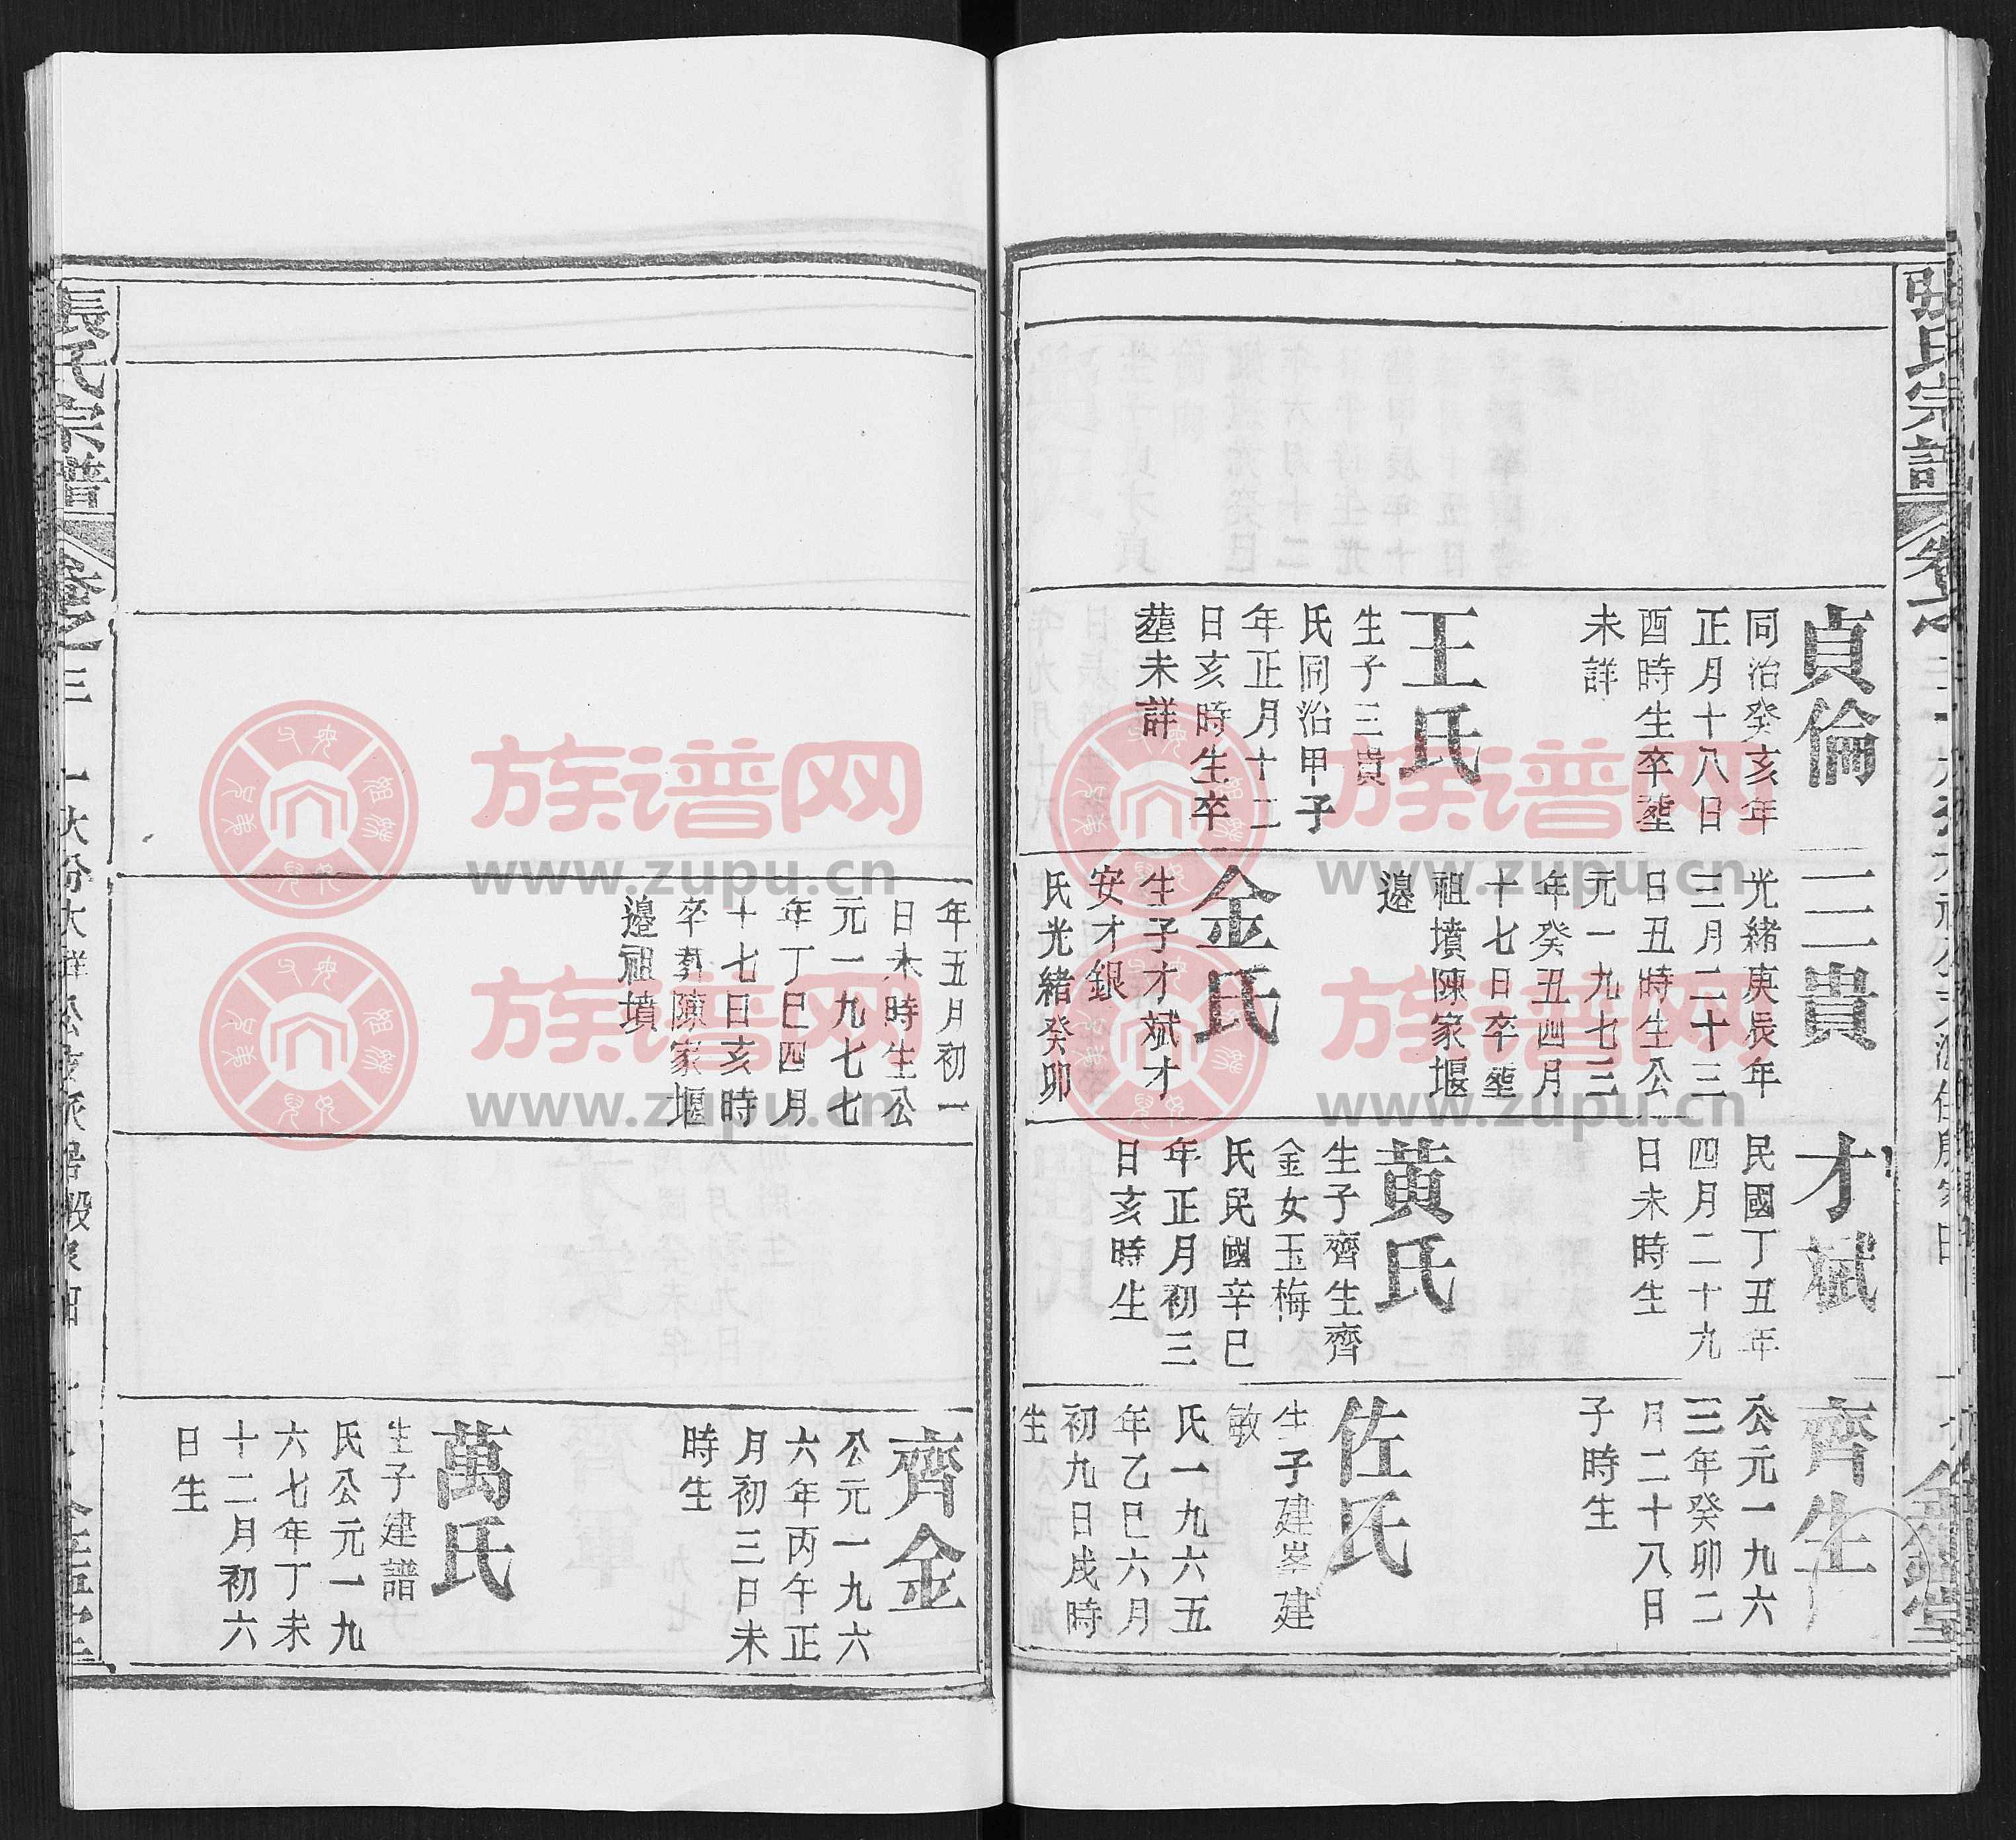 張氏宗譜
貞倫
同治癸亥年
正月十八日
酉時生卒塟
未詳
王氏
生子三貴
氏同治甲子
年正月十二
日亥時生卒
塟未詳
三貴
光緒庚辰年
三月二十三
日丑時生公
元一九七三
年癸丑四月
十七日卒塟
祖墳陳家堰
邉
金氏
生子才斌才
安才銀
氏光緒癸卯
才斌
民國丁丑年
四月二十九
日未時生
黃氏
生子齊生齊
金女玉梅
氏民國辛巳
年正月初三
日亥時生
齊生
公元一九六
三年癸卯二
月二十八日
子時生
佐氏
生子建峯建
敏
氏一九六五
年乙巳六月
初九日戌時
生
年五月初一
日未時生公
元一九七七
年丁巳四月
十七日亥時
卒塟陳家堰
邉祖墳
齊金
公元一九六
六年丙午正
月初三日未
時生
萬氏
生子建譜
氏公元一九
六七年丁未
十二月初六
日生
張氏宗譜
族谱网
www.zupu.cn
族谱网
www.zupu.cn
族谱网
www.zupu.cn
族谱网
www.zupu.cn